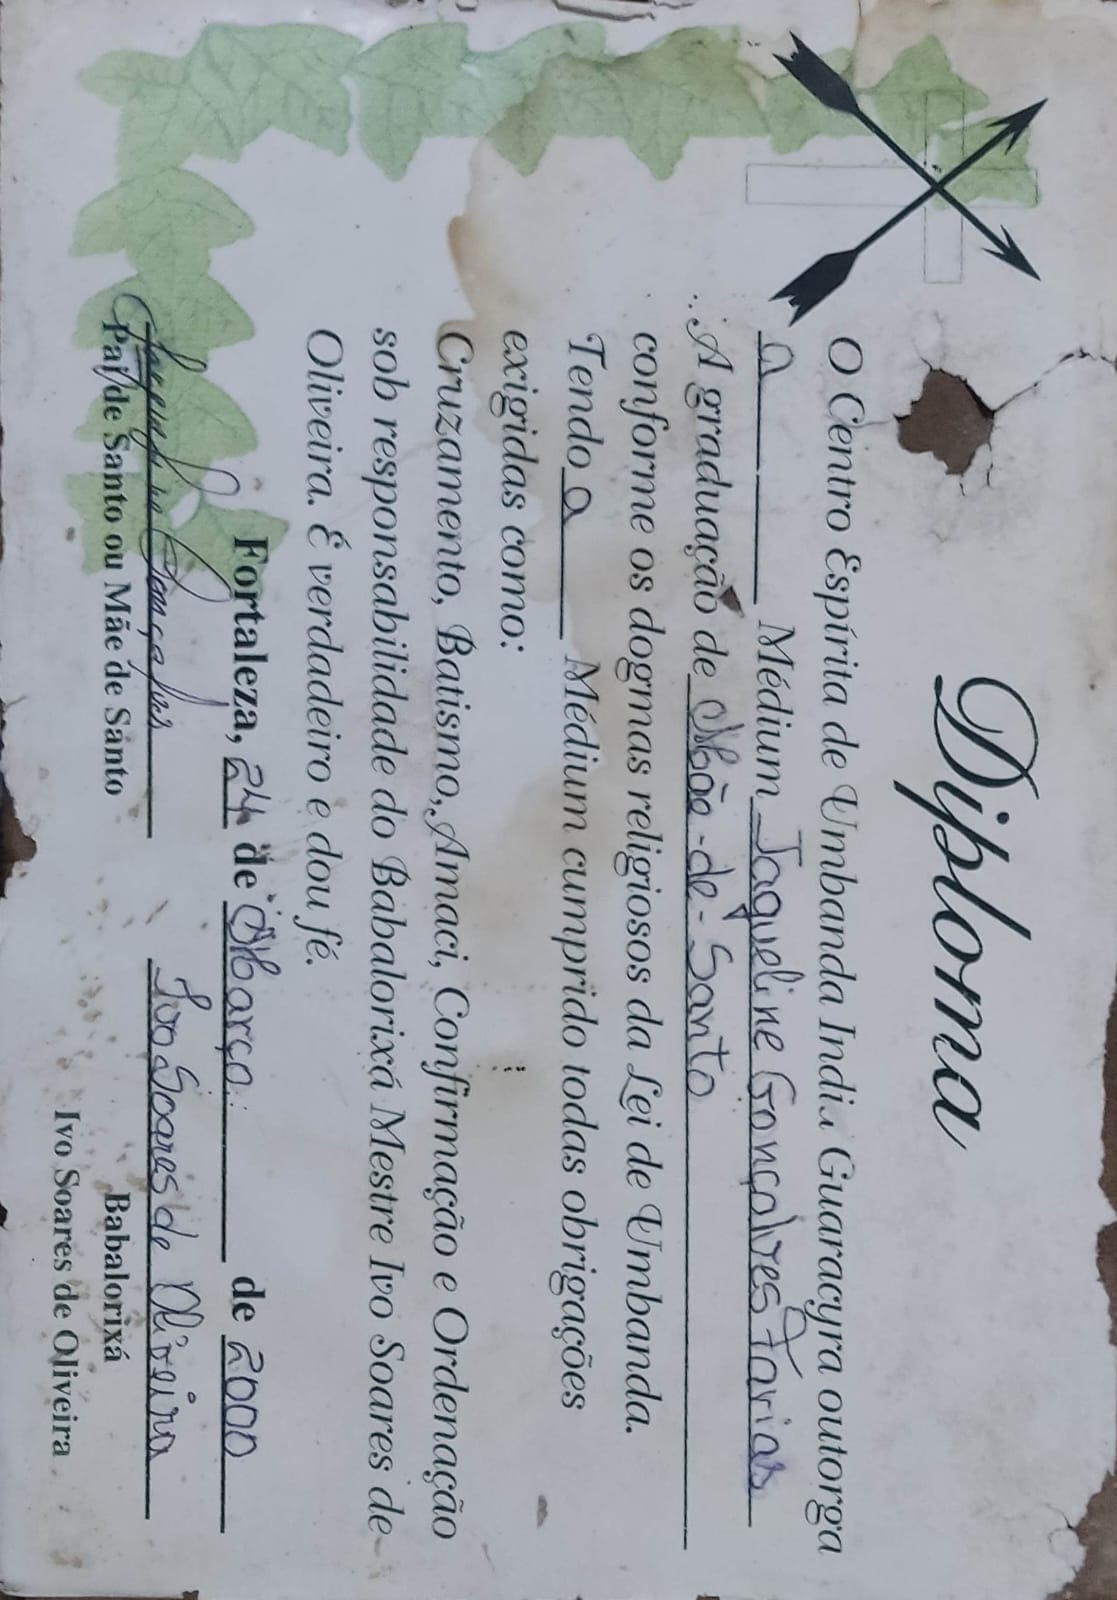 Diploma
O Centro Espírita de Umbanda Índia Guaracyra outorga
a Médium Jaqueline Gonçalves Farias
A graduação de Mãe-de-Santo
conforme os dogmas religiosos da Lei de Umbanda.
Tendo a Médium cumprido todas obrigações
exigidas como:
Cruzamento, Batismo, Amaci, Confirmação e Ordenação
sob responsabilidade do Babalorixá Mestre Ivo Soares de
Oliveira. É verdadeiro e dou fé.
Fortaleza, 24 de Março de 2000
Gonçalves Ivo Soares de Oliveira
Pai/de Santo ou Mãe de Santo Babalorixá
Ivo Soares de Oliveira